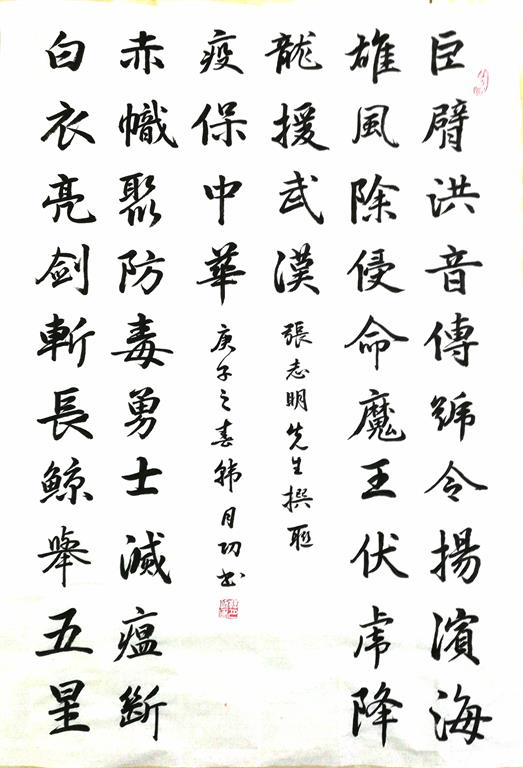 巨臂洪音傳號令揚濱海
雄風除侵命魔王伏虎降
龍援武漢
張志明先生撰聯
白衣亮劍斬長鯨舉五星
赤幟聚防毒勇士滅瘟斷
疫保中華
庚子之春韓月功書